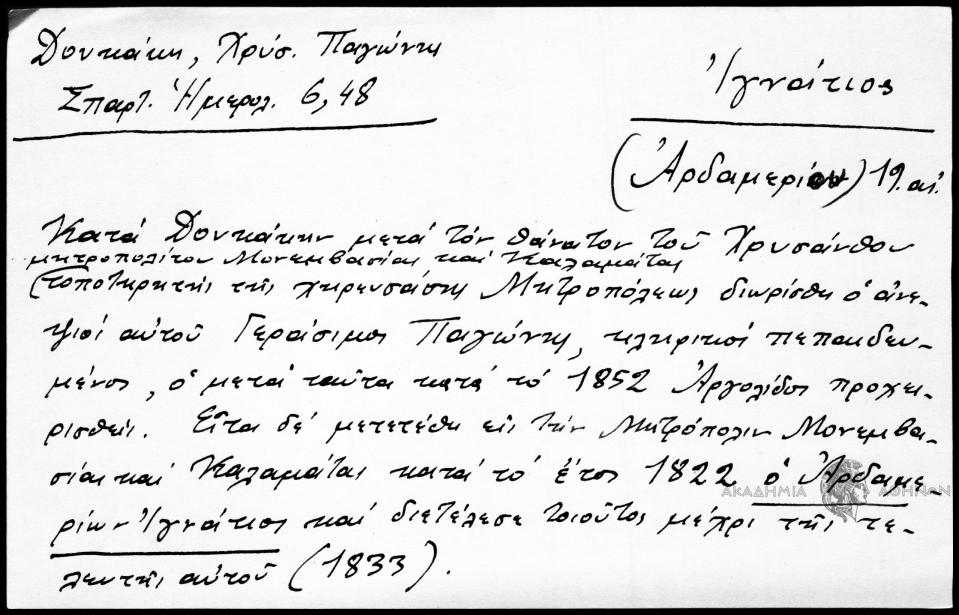 Δουκάκη, Χρύσ. Παγώνης
Σπαρτ. Ἡμερολ. 6, 48
Ἰγνάτιος
(Ἀρδαμερίου) 19. αἰ.
Κατά Δουκάκην μετά τόν θάνατον τοῦ Χρυσάνθου
μητροπολίτου Μονεμβασίας καί Καλαμάτας
τοποτηρητής τῆς χηρευσάσης Μητροπόλεως διωρίσθη ὁ ἀνε-
ψιός αὐτοῦ Γεράσιμος Παγώνης, κληρικός πεπαιδευ-
μένος, ὁ μετά ταῦτα κατά τό 1852 Ἀργολίδος προχει-
ρισθείς. Εἶτα δέ μετετέθη εἰς τήν Μητρόπολιν Μονεμβα-
σίας καί Καλαμάτας κατά τό ἔτος 1822 ὁ Ἀρδαμε-
ρίων Ἰγνάτιος καί διετέλεσε τοιοῦτος μέχρι τῆς τε-
λευτῆς αὐτοῦ (1833).
ΑΚΑΔΗΜΙΑ ΑΘΗΝΩΝ